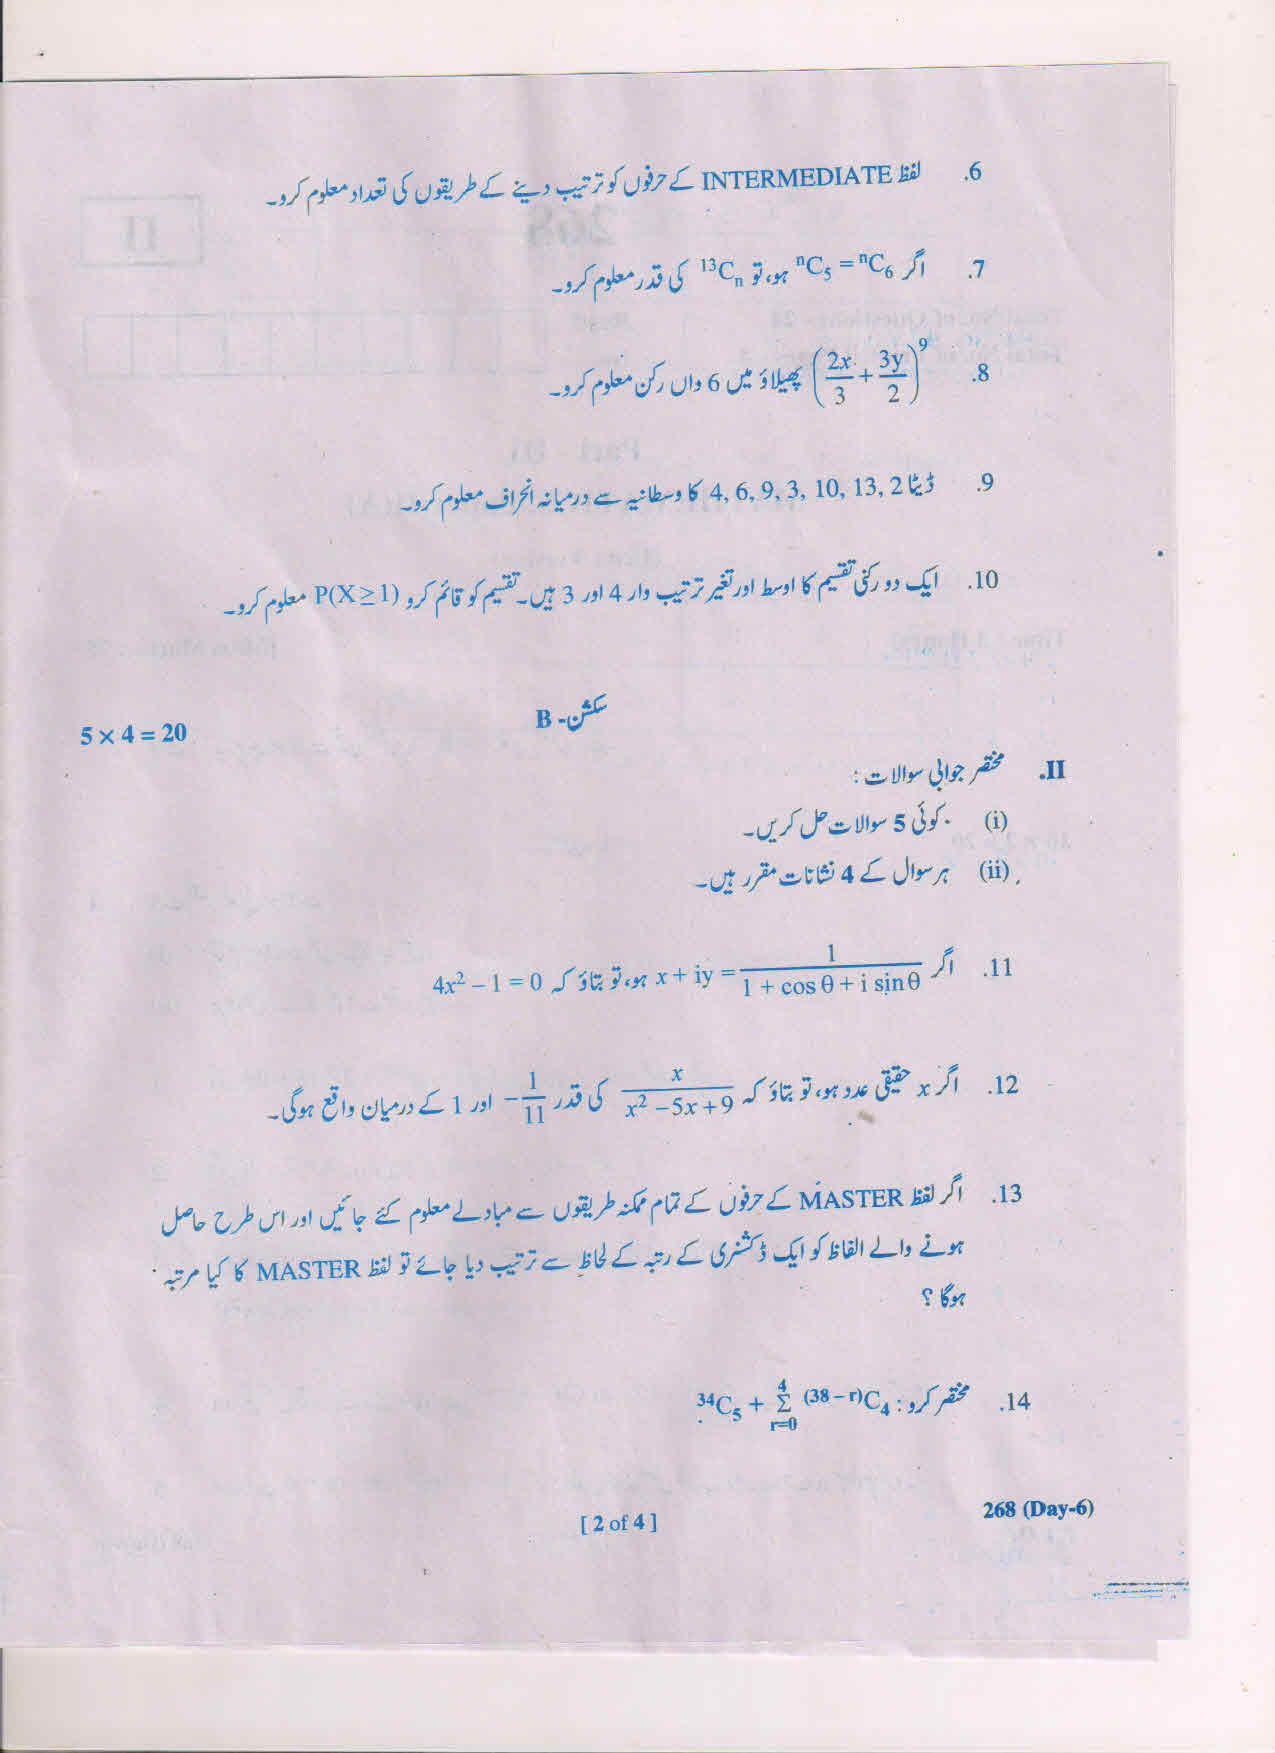 6. لفظ INTERMEDIATE کے حرفوں کو ترتیب دینے کے طریقوں کی تعداد معلوم کرو۔
7. اگر ⁿC₅ = ⁿC₆ ہو، تو ¹³Cₙ کی قدر معلوم کرو۔
8. (2x/3 + 3y/2)⁹ پھیلاؤ میں 6 واں رکن معلوم کرو۔
9. ڈیٹا 4, 6, 9, 3, 10, 13, 2 کا وسطانیہ سے درمیانہ انحراف معلوم کرو۔
10. ایک دو رکنی تقسیم کا اوسط اور تغیر ترتیب وار 4 اور 3 ہیں۔ تقسیم کو قائم کرو P(X ≥ 1) معلوم کرو۔
سکشن - B
5 × 4 = 20
II. مختصر جوابی سوالات :
(i) کوئی 5 سوالات حل کریں۔
(ii) ہر سوال کے 4 نشانات مقرر ہیں۔
11. اگر x + iy = 1/(1 + cos θ + i sin θ) ہو، تو بتاؤ کہ 4x² – 1 = 0
12. اگر x حقیقی عدد ہو، تو بتاؤ کہ x/(x² – 5x + 9) کی قدر –1/11 اور 1 کے درمیان واقع ہوگی۔
13. اگر لفظ MASTER کے حرفوں کے تمام ممکنہ طریقوں سے مبادلے معلوم کئے جائیں اور اس طرح حاصل
ہونے والے الفاظ کو ایک ڈکشنری کے رتبہ کے لحاظ سے ترتیب دیا جائے تو لفظ MASTER کا کیا مرتبہ
ہوگا ؟
14. مختصر کرو : ³⁴C₅ + Σ(r=0 to 4) ⁽³⁸⁻ʳ⁾C₄
268 (Day-6)
[ 2 of 4 ]